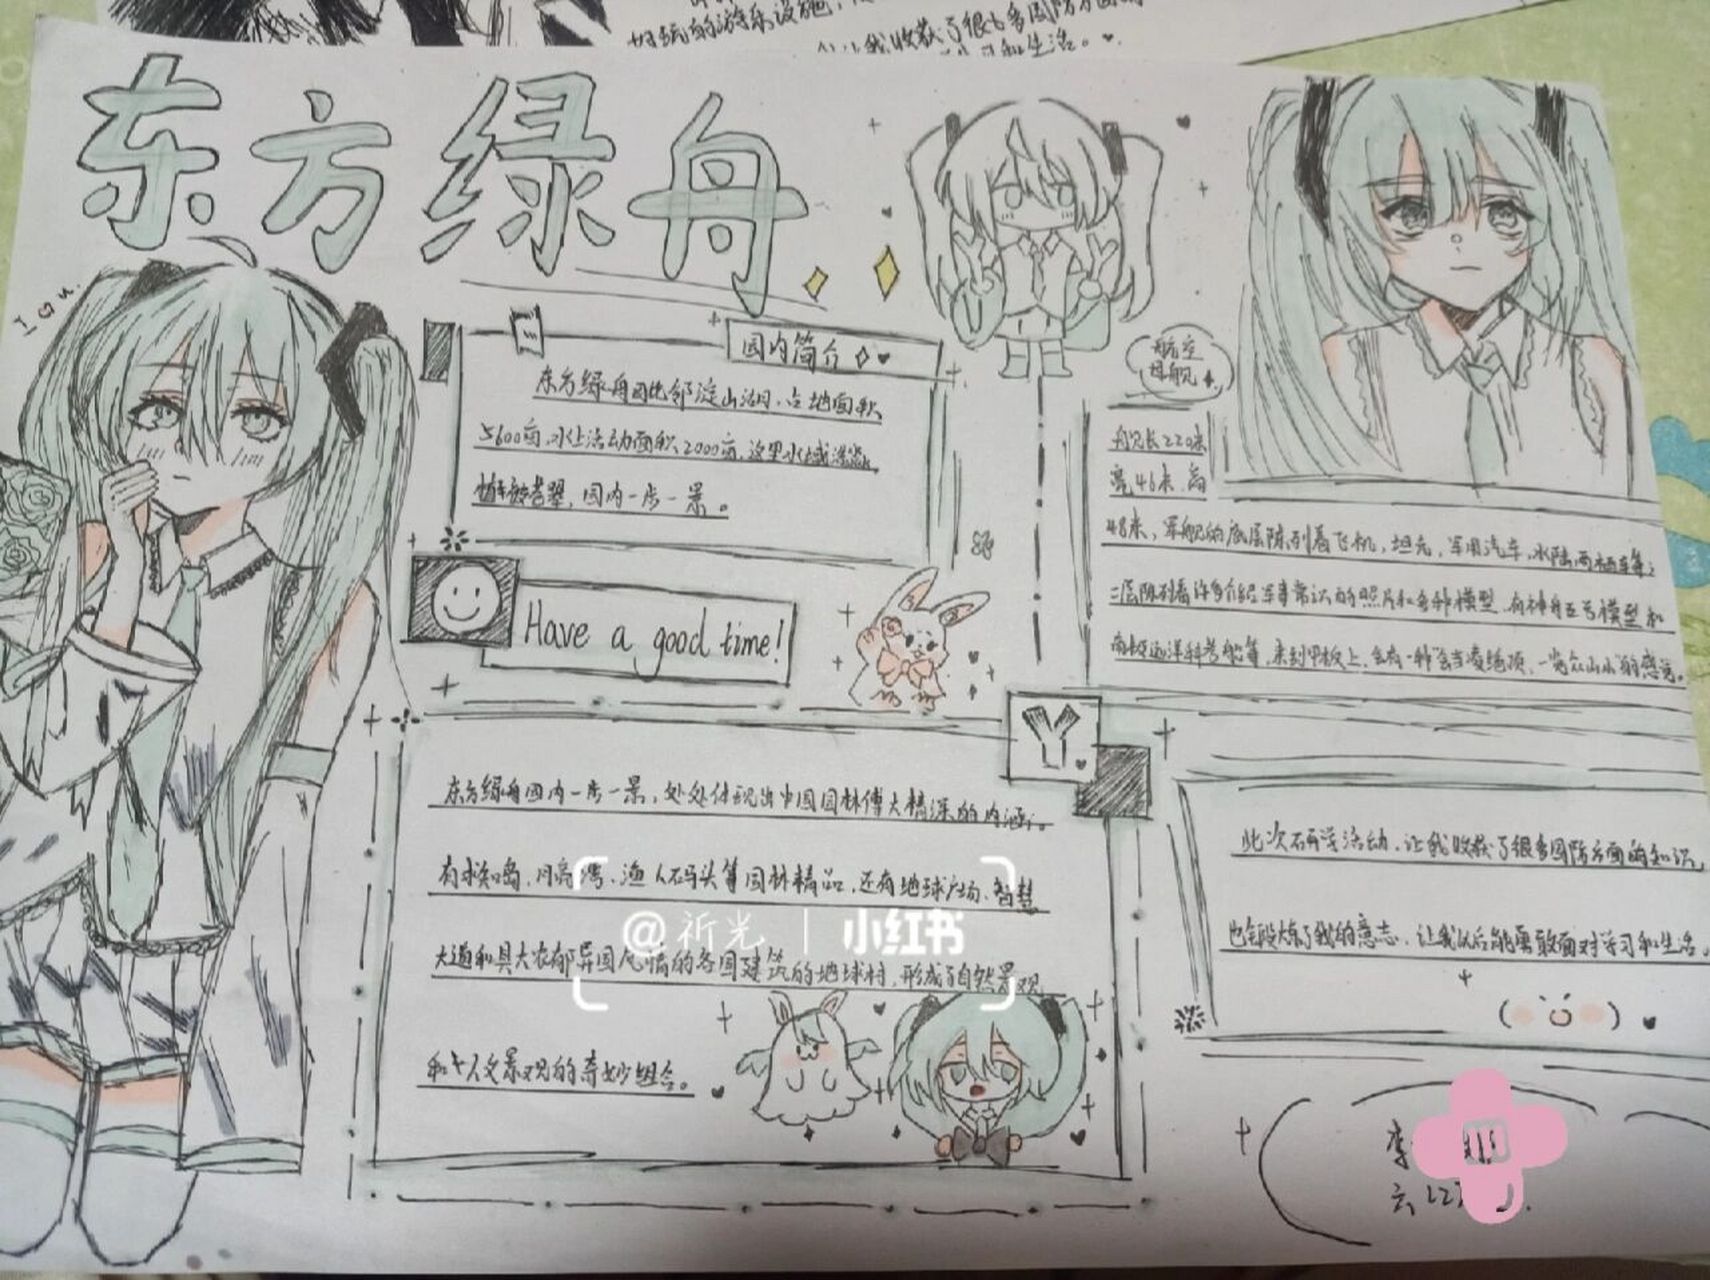 好玩的游乐设施，
让我收获了很多国防方面的
习和生活。
东方绿舟
I am.
园内简介
东方绿舟园比邻淀山湖、占地面积
5600亩，水上活动面积2000亩，这里水域
园内一步一景。
Have a good time!
航空
母舰
舟舰长220米
宽46米、高
48米，军舰的底层陈列着飞机，坦克，军用汽车，水陆两栖车等；
二层陈列着许多介绍军事常识的照片和各种模型，有神舟五号模型和
南极远洋科考船等，来到甲板上，会有一种“会当凌绝顶，一览众山小”的感觉。
东方绿舟园内一步一景，处处体现出中国园林博大精深的内涵；
有求知岛、月亮湾、渔人码头等园林精品，还有地球广场、智慧
大道和具大浓郁异国风情的各国建筑的地球村，形成了自然景观
和人文景观的奇妙组合。
@祈光 | 小红书
此次研学活动，让我收获了很多国防方面的知识，
也锻炼了我的意志，让我以后能勇敢面对学习和生活。
李
六